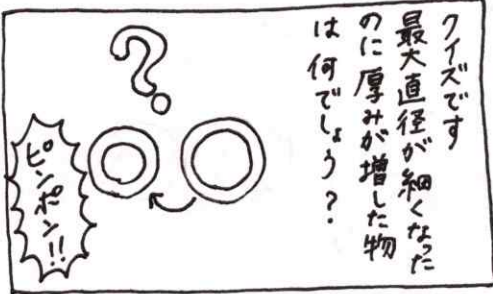 クイズです
最大直径が細くなった
のに厚みが増した物
は何でしょう?
?
ピンポン!!